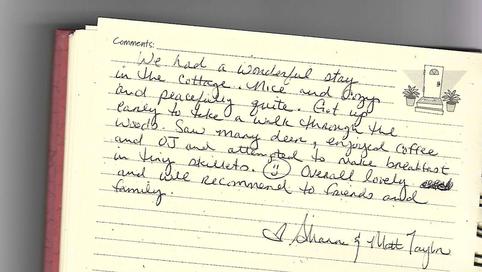 Comments:
We had a wonderful stay
in the cottage. Nice and cozy
and peacefully quite. Got up
early to take a walk through the
woods. Saw many deer, enjoyed coffee
and OJ and attempted to make breakfast
in tiny skillets. Overall lovely
and will recommend to friends and
family.
Sharon & Matt Taylor